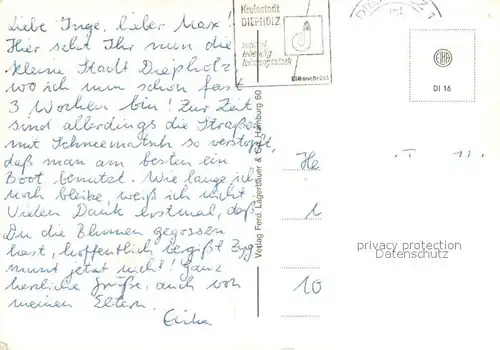 Liebe Inge, lieber Max!
Hier seht Ihr nun die
kleine Stadt Diepholz
wo ich nun schon fast
3 Wochen bin! Zur Zeit
sind allerdings die Straßen
mit Schneematsch so verstopft,
daß man am besten ein
Boot benutzt. Wie lange ich
noch bleibe, weiß ich nicht
Vielen Dank erstmal, daß
Du die Blumen gegossen
hast, hoffentlich vergißt Zyg
munt jetzt nicht! Ganz
herzliche Grüße, auch von
meinen Eltern.
Kreisstadt
DIEPHOLZ
DIEPHOLZ 1
DI 16
Verlag Ferd. Lagerbauer & Co., Hamburg 60
He
10
privacy protection
Datenschutz